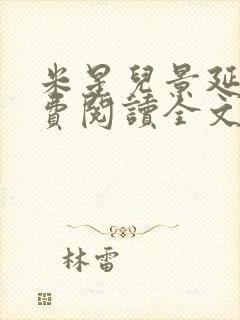 米星兒景延
費閱讀全文
林雷